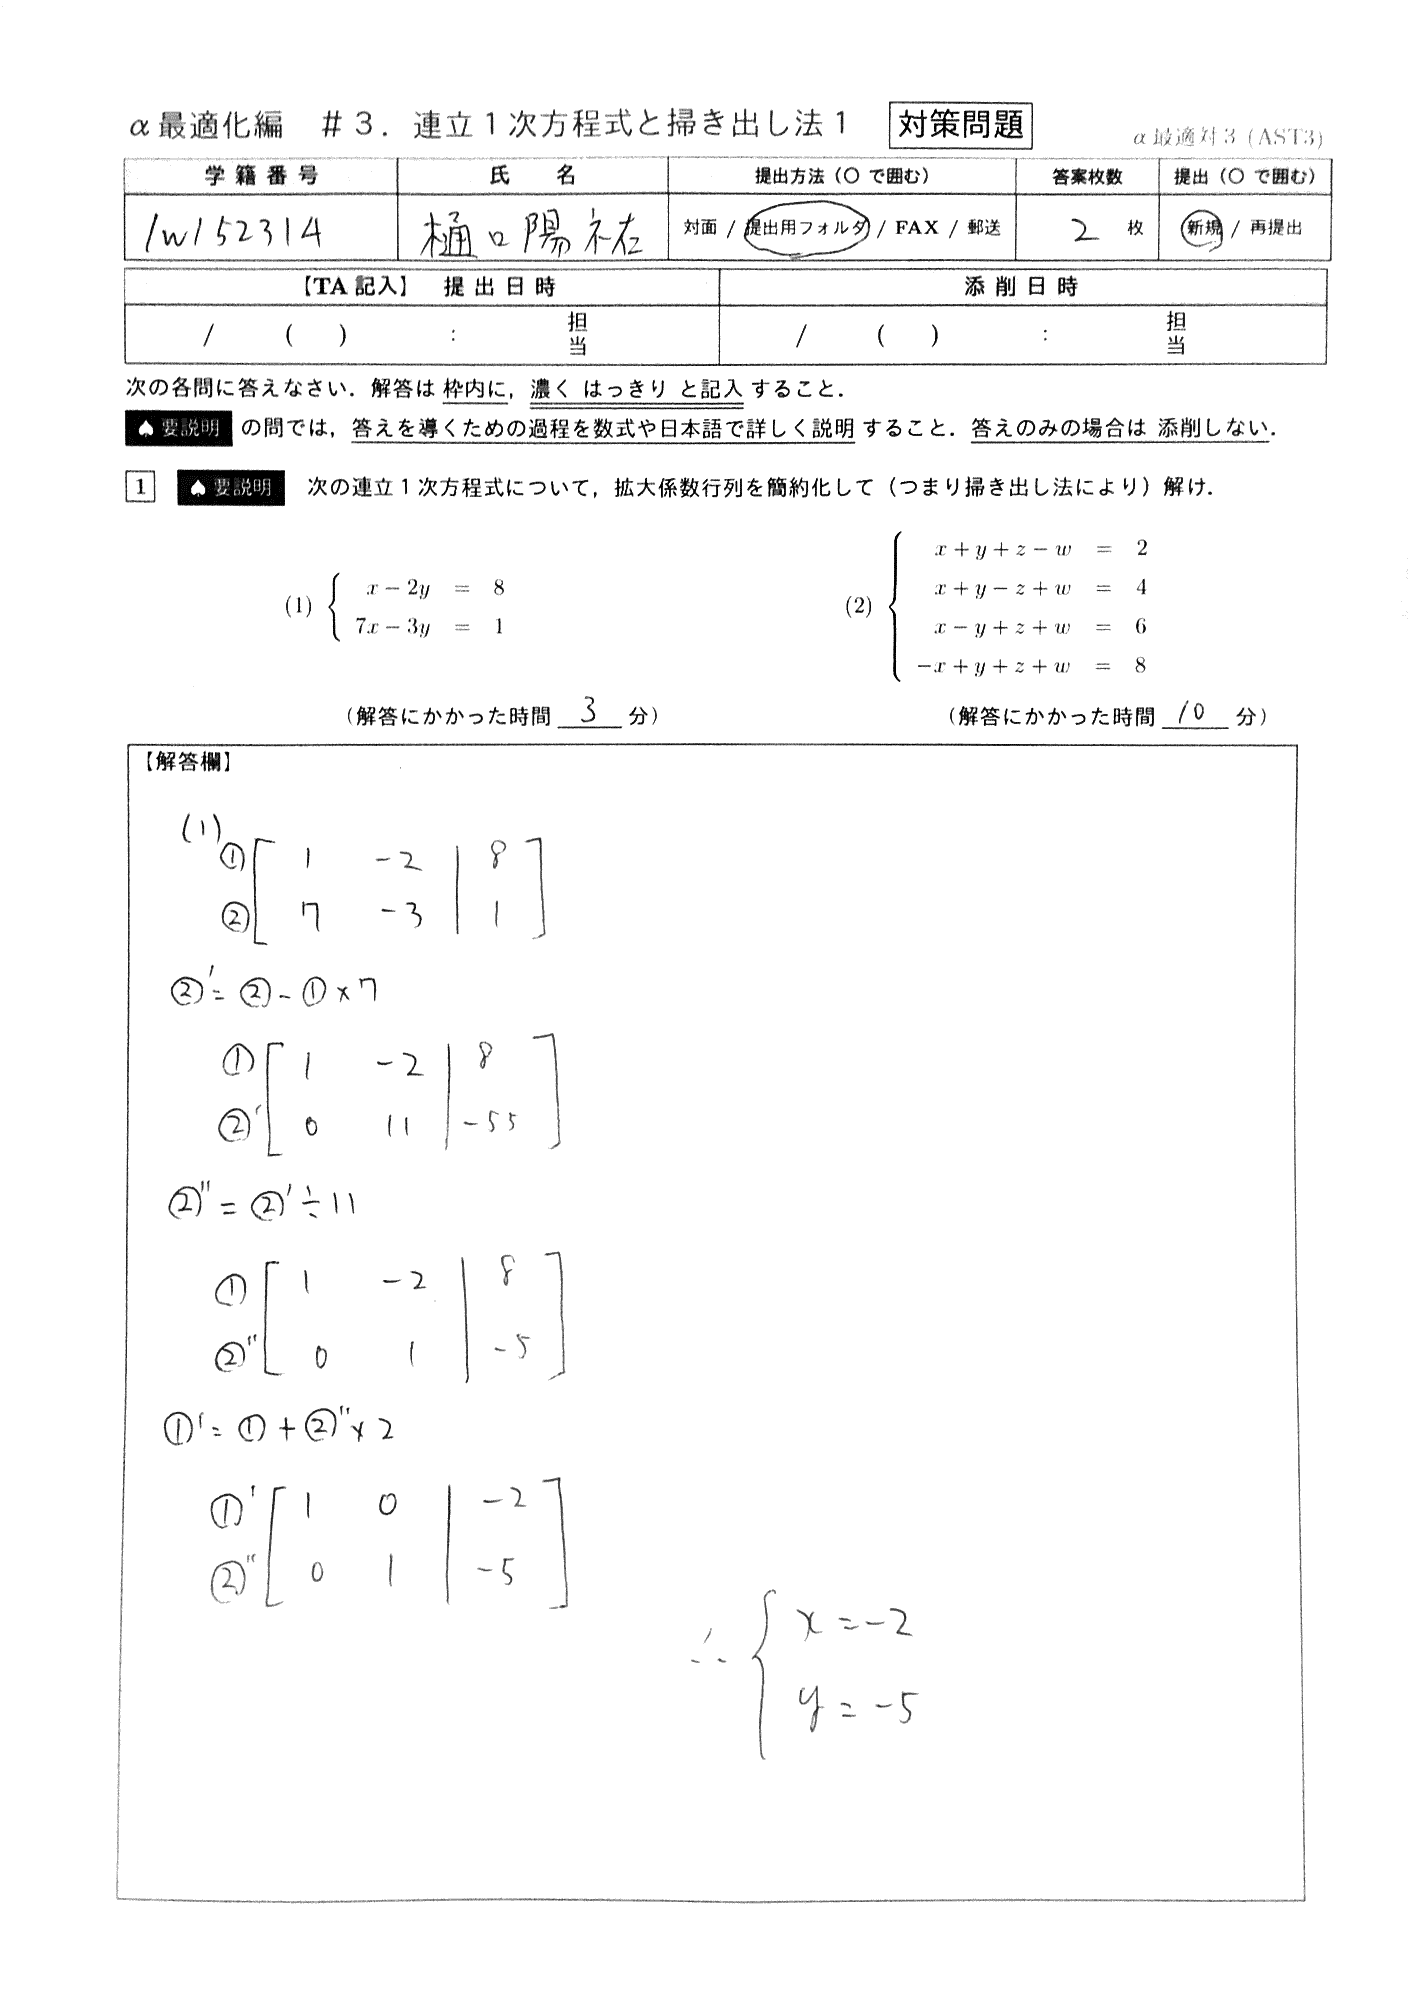 α最適化編 #3．連立1次方程式と掃き出し法1 対策問題 α最適対3 (AST3)
学籍番号 氏 名 提出方法（○で囲む） 答案枚数 提出（○で囲む）
1w152314 樋口陽祐 対面 / 提出用フォルダ / FAX / 郵送 2 枚 新規 / 再提出
【TA記入】 提出日時 添削日時
/ ( ) : 担当 / ( ) : 担当
次の各問に答えなさい．解答は枠内に，濃く はっきり と記入すること．
♠要説明 の問では，答えを導くための過程を数式や日本語で詳しく説明すること．答えのみの場合は 添削しない．
1 ♠要説明 次の連立1次方程式について，拡大係数行列を簡約化して（つまり掃き出し法により）解け．
(1) { x − 2y = 8
7x − 3y = 1
(2) { x + y + z − w = 2
x + y − z + w = 4
x − y + z + w = 6
−x + y + z + w = 8
（解答にかかった時間 3 分） （解答にかかった時間 10 分）
【解答欄】
(1)
① [ 1 -2 | 8 ]
② [ 7 -3 | 1 ]
②' = ② - ① × 7
① [ 1 -2 | 8 ]
②' [ 0 11 | -55 ]
②'' = ②' ÷ 11
① [ 1 -2 | 8 ]
②'' [ 0 1 | -5 ]
①' = ① + ②'' × 2
①' [ 1 0 | -2 ]
②'' [ 0 1 | -5 ]
∴ { x = -2
y = -5